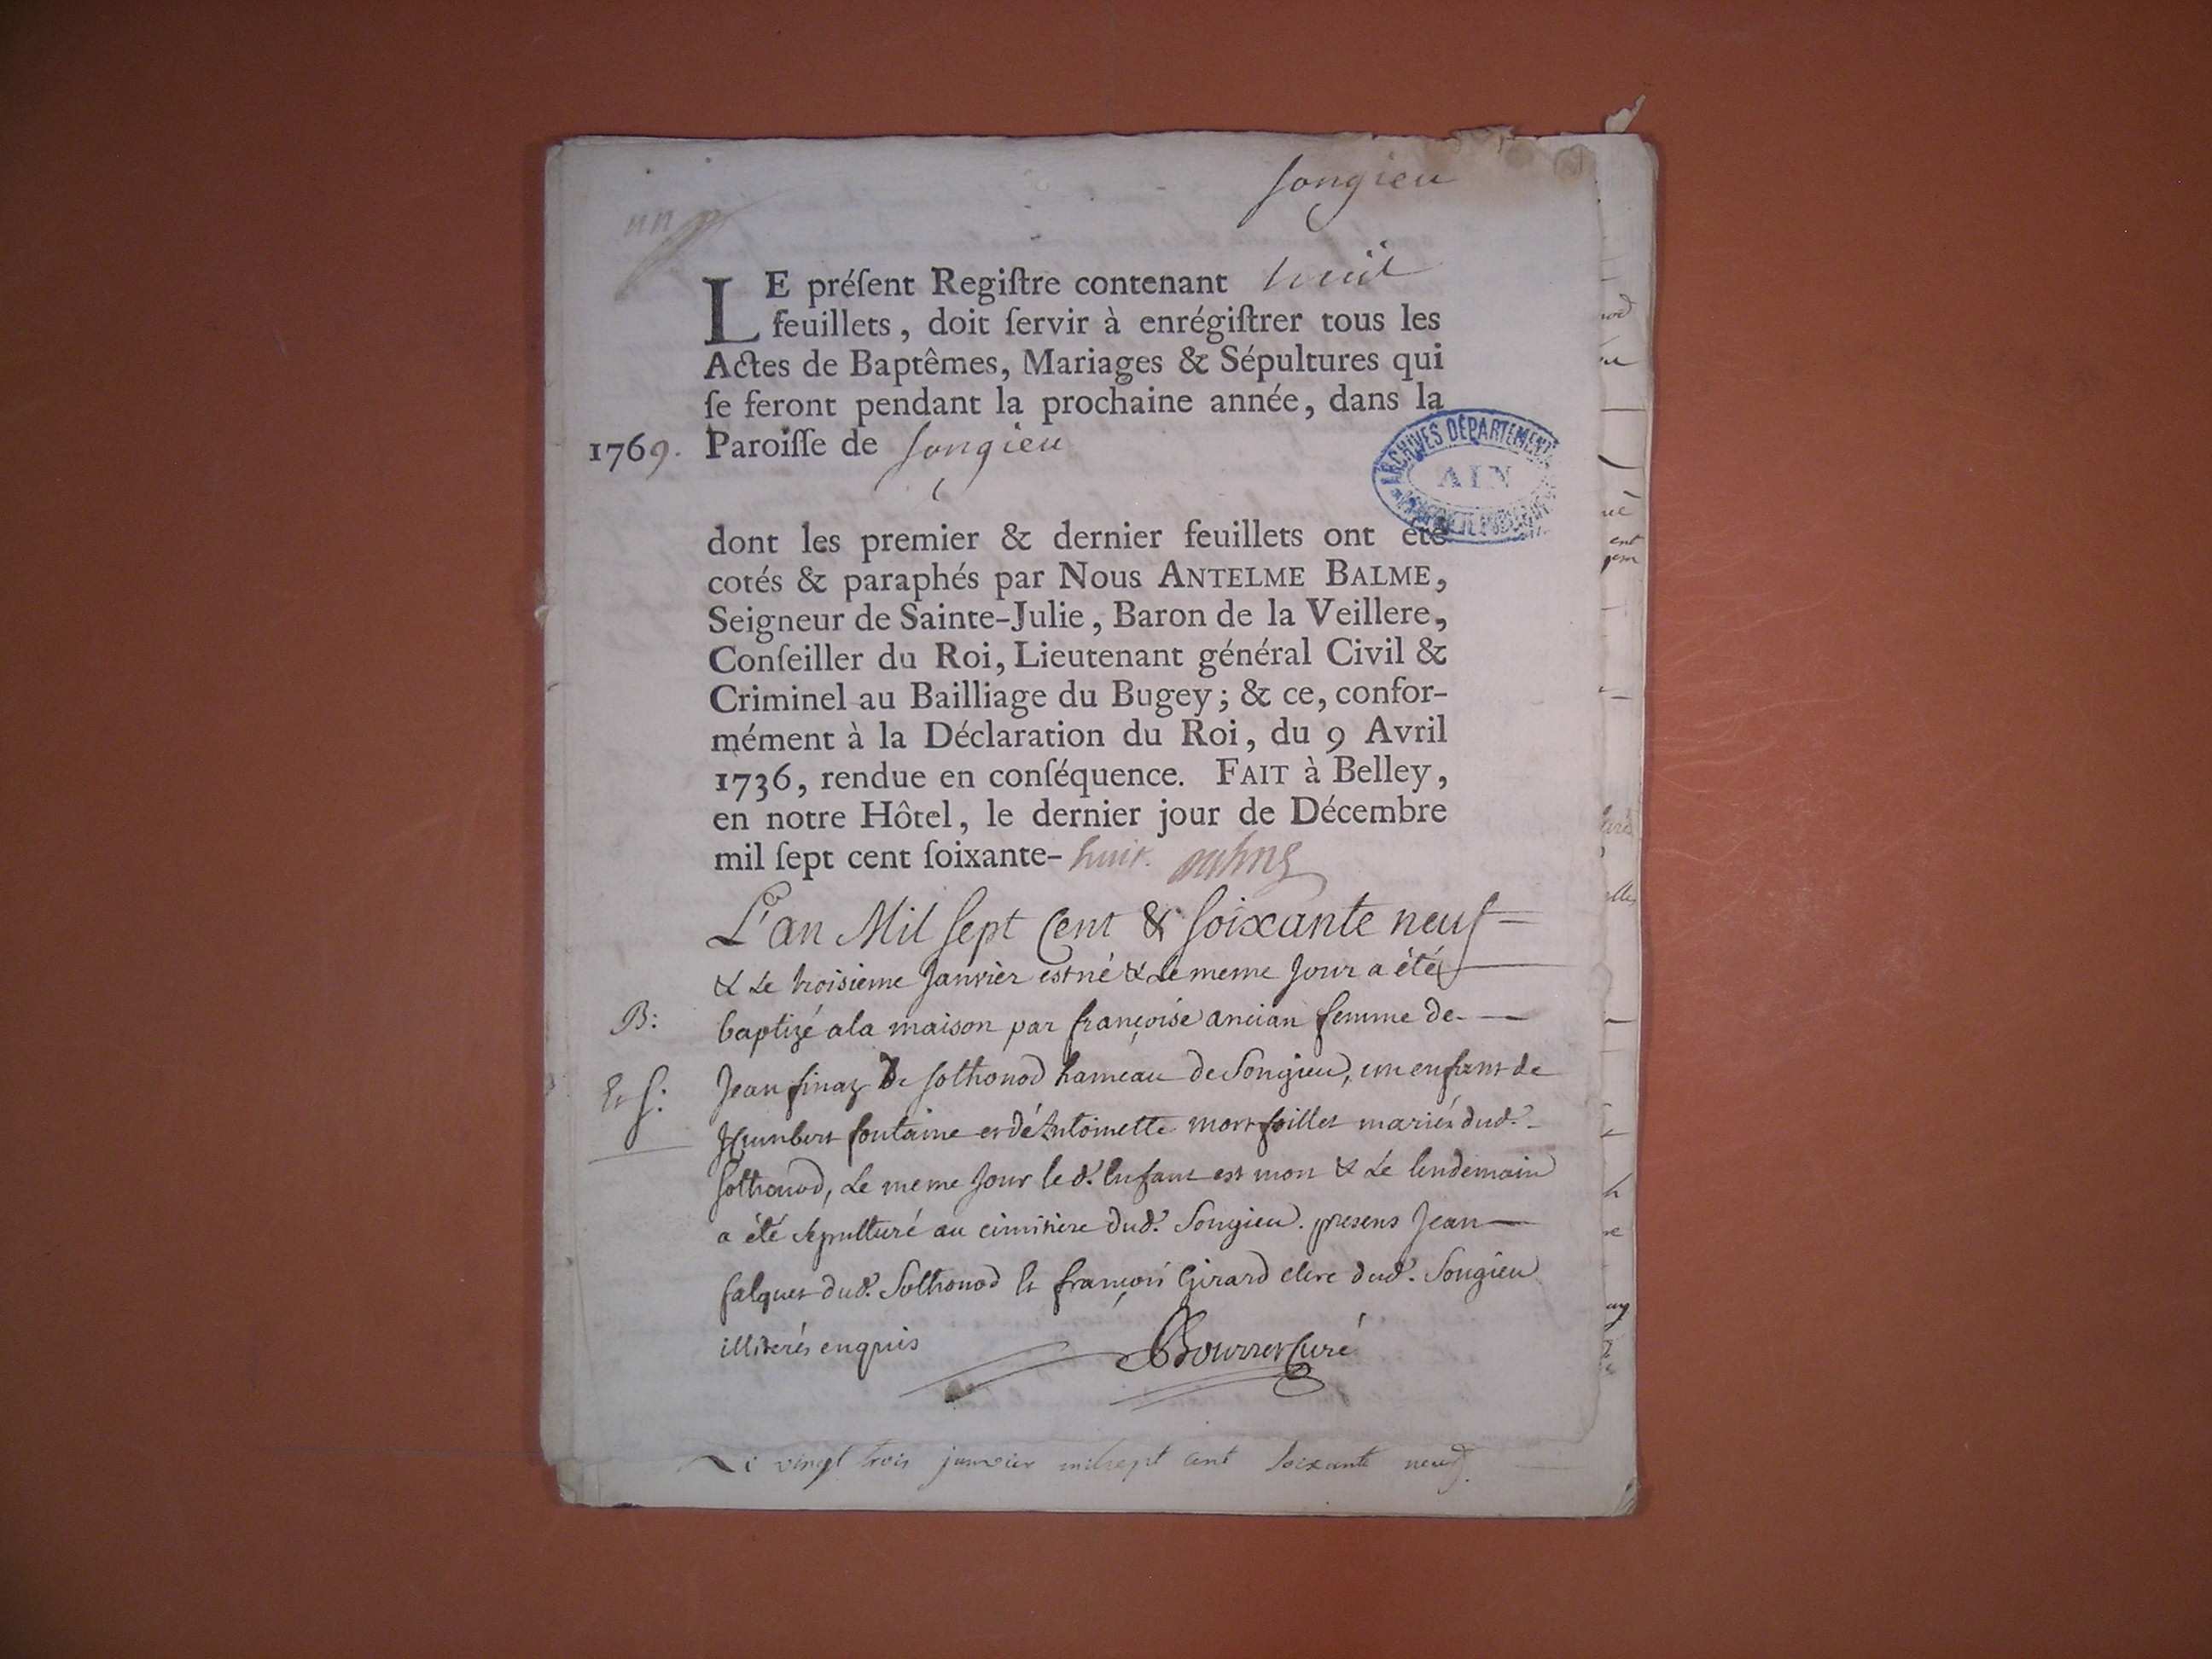 Songieu
un
LE préſent Regiſtre contenant huit
feuillets, doit ſervir à enrégiſtrer tous les
Actes de Baptêmes, Mariages & Sépultures qui
ſe feront pendant la prochaine année, dans la
1769. Paroiſſe de Songieu
ARCHIVES DÉPARTEMENT
AIN
dont les premier & dernier feuillets ont été
cotés & paraphés par Nous ANTELME BALME,
Seigneur de Sainte-Julie, Baron de la Veillere,
Conſeiller du Roi, Lieutenant général Civil &
Criminel au Bailliage du Bugey; & ce, confor-
mément à la Déclaration du Roi, du 9 Avril
1736, rendue en conſéquence. FAIT à Belley,
en notre Hôtel, le dernier jour de Décembre
mil ſept cent ſoixante-huit.
L'an Mil Sept Cent & Soixante neuf
& Le troisieme Janvier est né & Le meme Jour a été
B: baptizé a la maison par françoise ancian femme de
Et S: Jean finaz De Sothonod hameau de Songieu, un enfant de
Humbert fontaine et de Antoinette Montfoillet mariés dud.
Sothonod, Le meme Jour le d. Enfant est mort & Le lendemain
a été sépulturé au cimitiere dud. Songieu. presens Jean
falquet dud. Sothonod Et françois Girard clerc dud. Songieu
illiterés enquis Bourret Curé
Le vingt trois janvier mil sept cent soixante neuf.